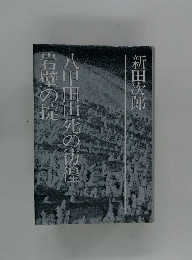 新田次郎
八甲田山死の彷徨
岩壁の掟